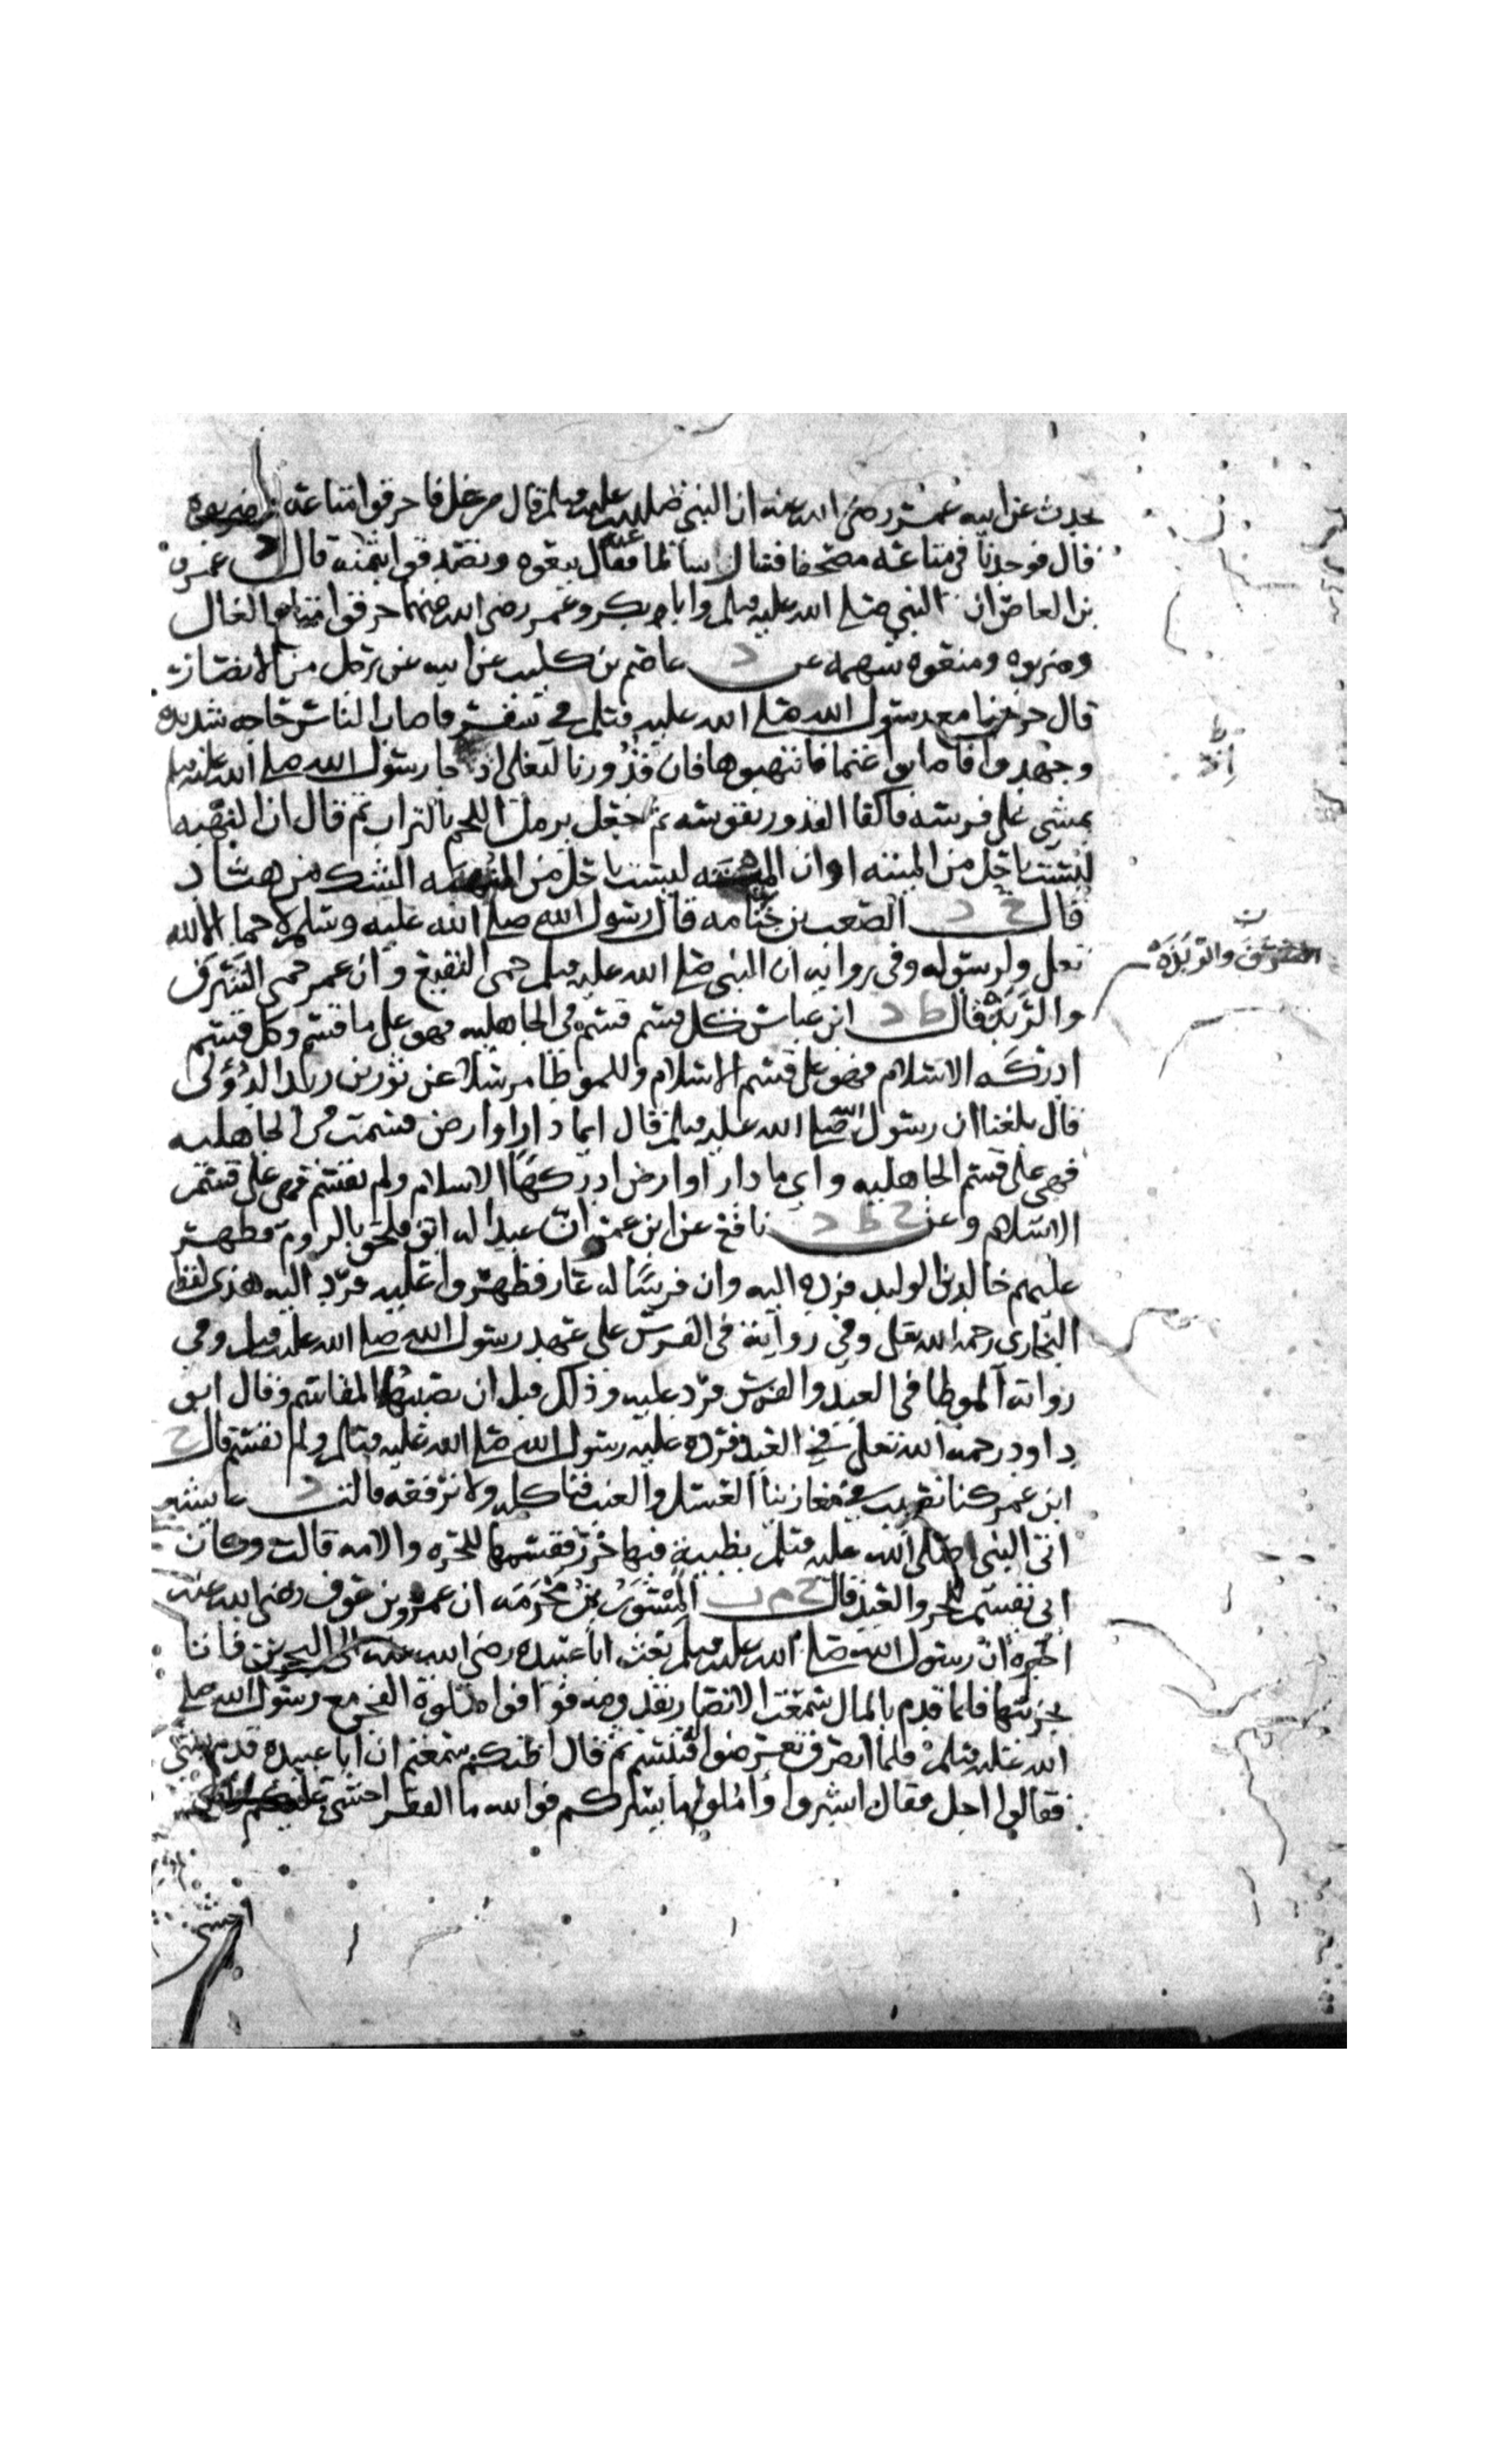 يحدث عن ابيه عمر رضي الله عنه ان النبي صلى الله عليه وسلم قال من غل فاحرقوا متاعه واضربوه
قال فوجدنا في متاعه مصحفا فسال سالما عنه فقال بيعوه وتصدقوا بثمنه قال د عمرو
بن العاص ان النبي صلى الله عليه وسلم وابا بكر وعمر رضي الله عنهما حرقوا متاع الغال
وضربوه ومنعوه سهمه عن د عاصم بن كليب عن ابيه عن رجل من الانصار
قال خرجنا مع رسول الله صلى الله عليه وسلم في سفر فاصاب الناس حاجه شديده
وجهدوا فاصابوا غنما فانتهبوها فان قدورنا لتغلي اذ جا رسول الله صلى الله عليه وسلم
يمشي على فرسه فاكفا القدور بقوسه ثم جعل يرمل اللحم بالتراب ثم قال ان النهبه
ليست باحل من الميته او ان الميته ليست باحل من النهبه الشك من هناد
قال خ د الصعب بن جثامه قال رسول الله صلى الله عليه وسلم لا حما الا لله
تعلى ولرسوله وفي روايه ان النبي صلى الله عليه وسلم حمى النقيع وان عمر حمى الشرف
والربذه قال ط د ابن عباس كل قسم قسم في الجاهليه فهو على ما قسم وكل قسم
ادركه الاسلام فهو على قسم الاسلام وللموطا مرسلا عن ثور بن زيد الدؤلي
قال بلغنا ان رسول الله صلى الله عليه وسلم قال ايما دار او ارض قسمت في الجاهليه
فهي على قسم الجاهليه واي ما دار او ارض ادركها الاسلام ولم تقسم فهي على قسم
الاسلام وعن خ ط د نافع عن ابن عمر ان عبدا له ابق فلحق بالروم فظهر
عليهم خالد بن الوليد فرده اليه وان فرسا له عار فظهروا عليه فرد اليه هذى لفظ
البخاري رحمه الله تعلى وفي روايه في الفرس على عهد رسول الله صلى الله عليه وسلم وفي
روايه الموطا في العبد والفرس فرد عليه وذلك قبل ان تصيبهما المقاسم وقال ابو
داود رحمه الله تعلى في العبد فرده عليه رسول الله صلى الله عليه وسلم ولم تقسم قال خ
ابن عمر كنا نصيب في مغازينا العسل والعنب فناكله ولا نرفعه قالت د عايشه
اتى النبي صلى الله عليه وسلم بظبية فيها خرز فقسمها للحره والامه قالت وكان
ابي يقسم للحر والعبد قال خ م ت المسور بن مخرمه ان عمرو بن عوف رضي الله عنه
اخبره ان رسول الله صلى الله عليه وسلم بعث ابا عبيده رضي الله عنه الى البحرين فاتا
بجزيتها فلما قدم بالمال سمعت الانصار بقدومه فوافوا صلوة الفجر مع رسول الله صلى
الله عليه وسلم فلما انصرف تعرضوا فتبسم ثم قال اظنكم سمعتم ان ابا عبيده قدم بشي
فقالوا اجل فقال ابشروا واملوا ما يسركم فوالله ما الفقر اخشى عليكم
الشرف والربذه
اخشى